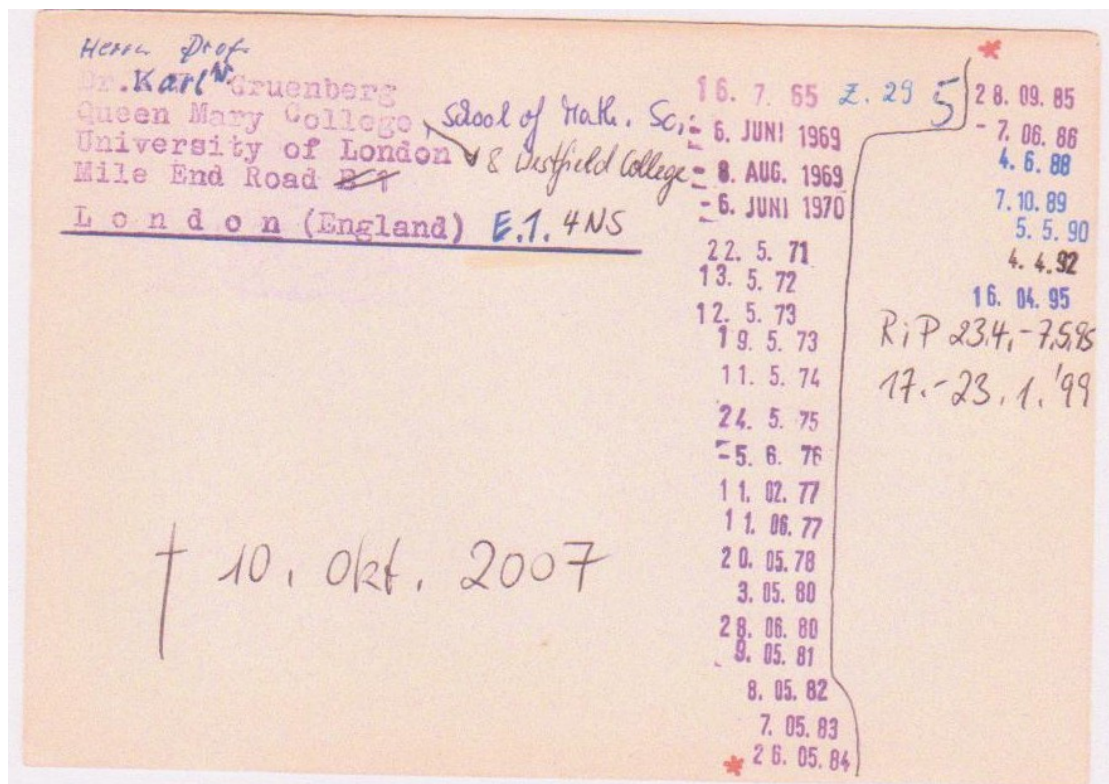 Herrn Prof.
Dr. Karl W. Gruenberg
Queen Mary College, School of Math. Sc.,
University of London & Westfield College
Mile End Road E 1
London (England) E.1. 4NS
16. 7. 65 Z. 29 5
- 6. JUNI 1969
- 8. AUG. 1969
- 6. JUNI 1970
22. 5. 71
13. 5. 72
12. 5. 73
19. 5. 73
11. 5. 74
24. 5. 75
-5. 6. 76
11. 02. 77
11. 06. 77
20. 05. 78
3. 05. 80
28. 06. 80
9. 05. 81
8. 05. 82
7. 05. 83
* 26. 05. 84
*
28. 09. 85
- 7. 06. 86
4. 6. 88
7. 10. 89
5. 5. 90
4. 4. 92
16. 04. 95
RiP 23.4.-7.5.95
17.-23.1.'99
† 10. Okt. 2007